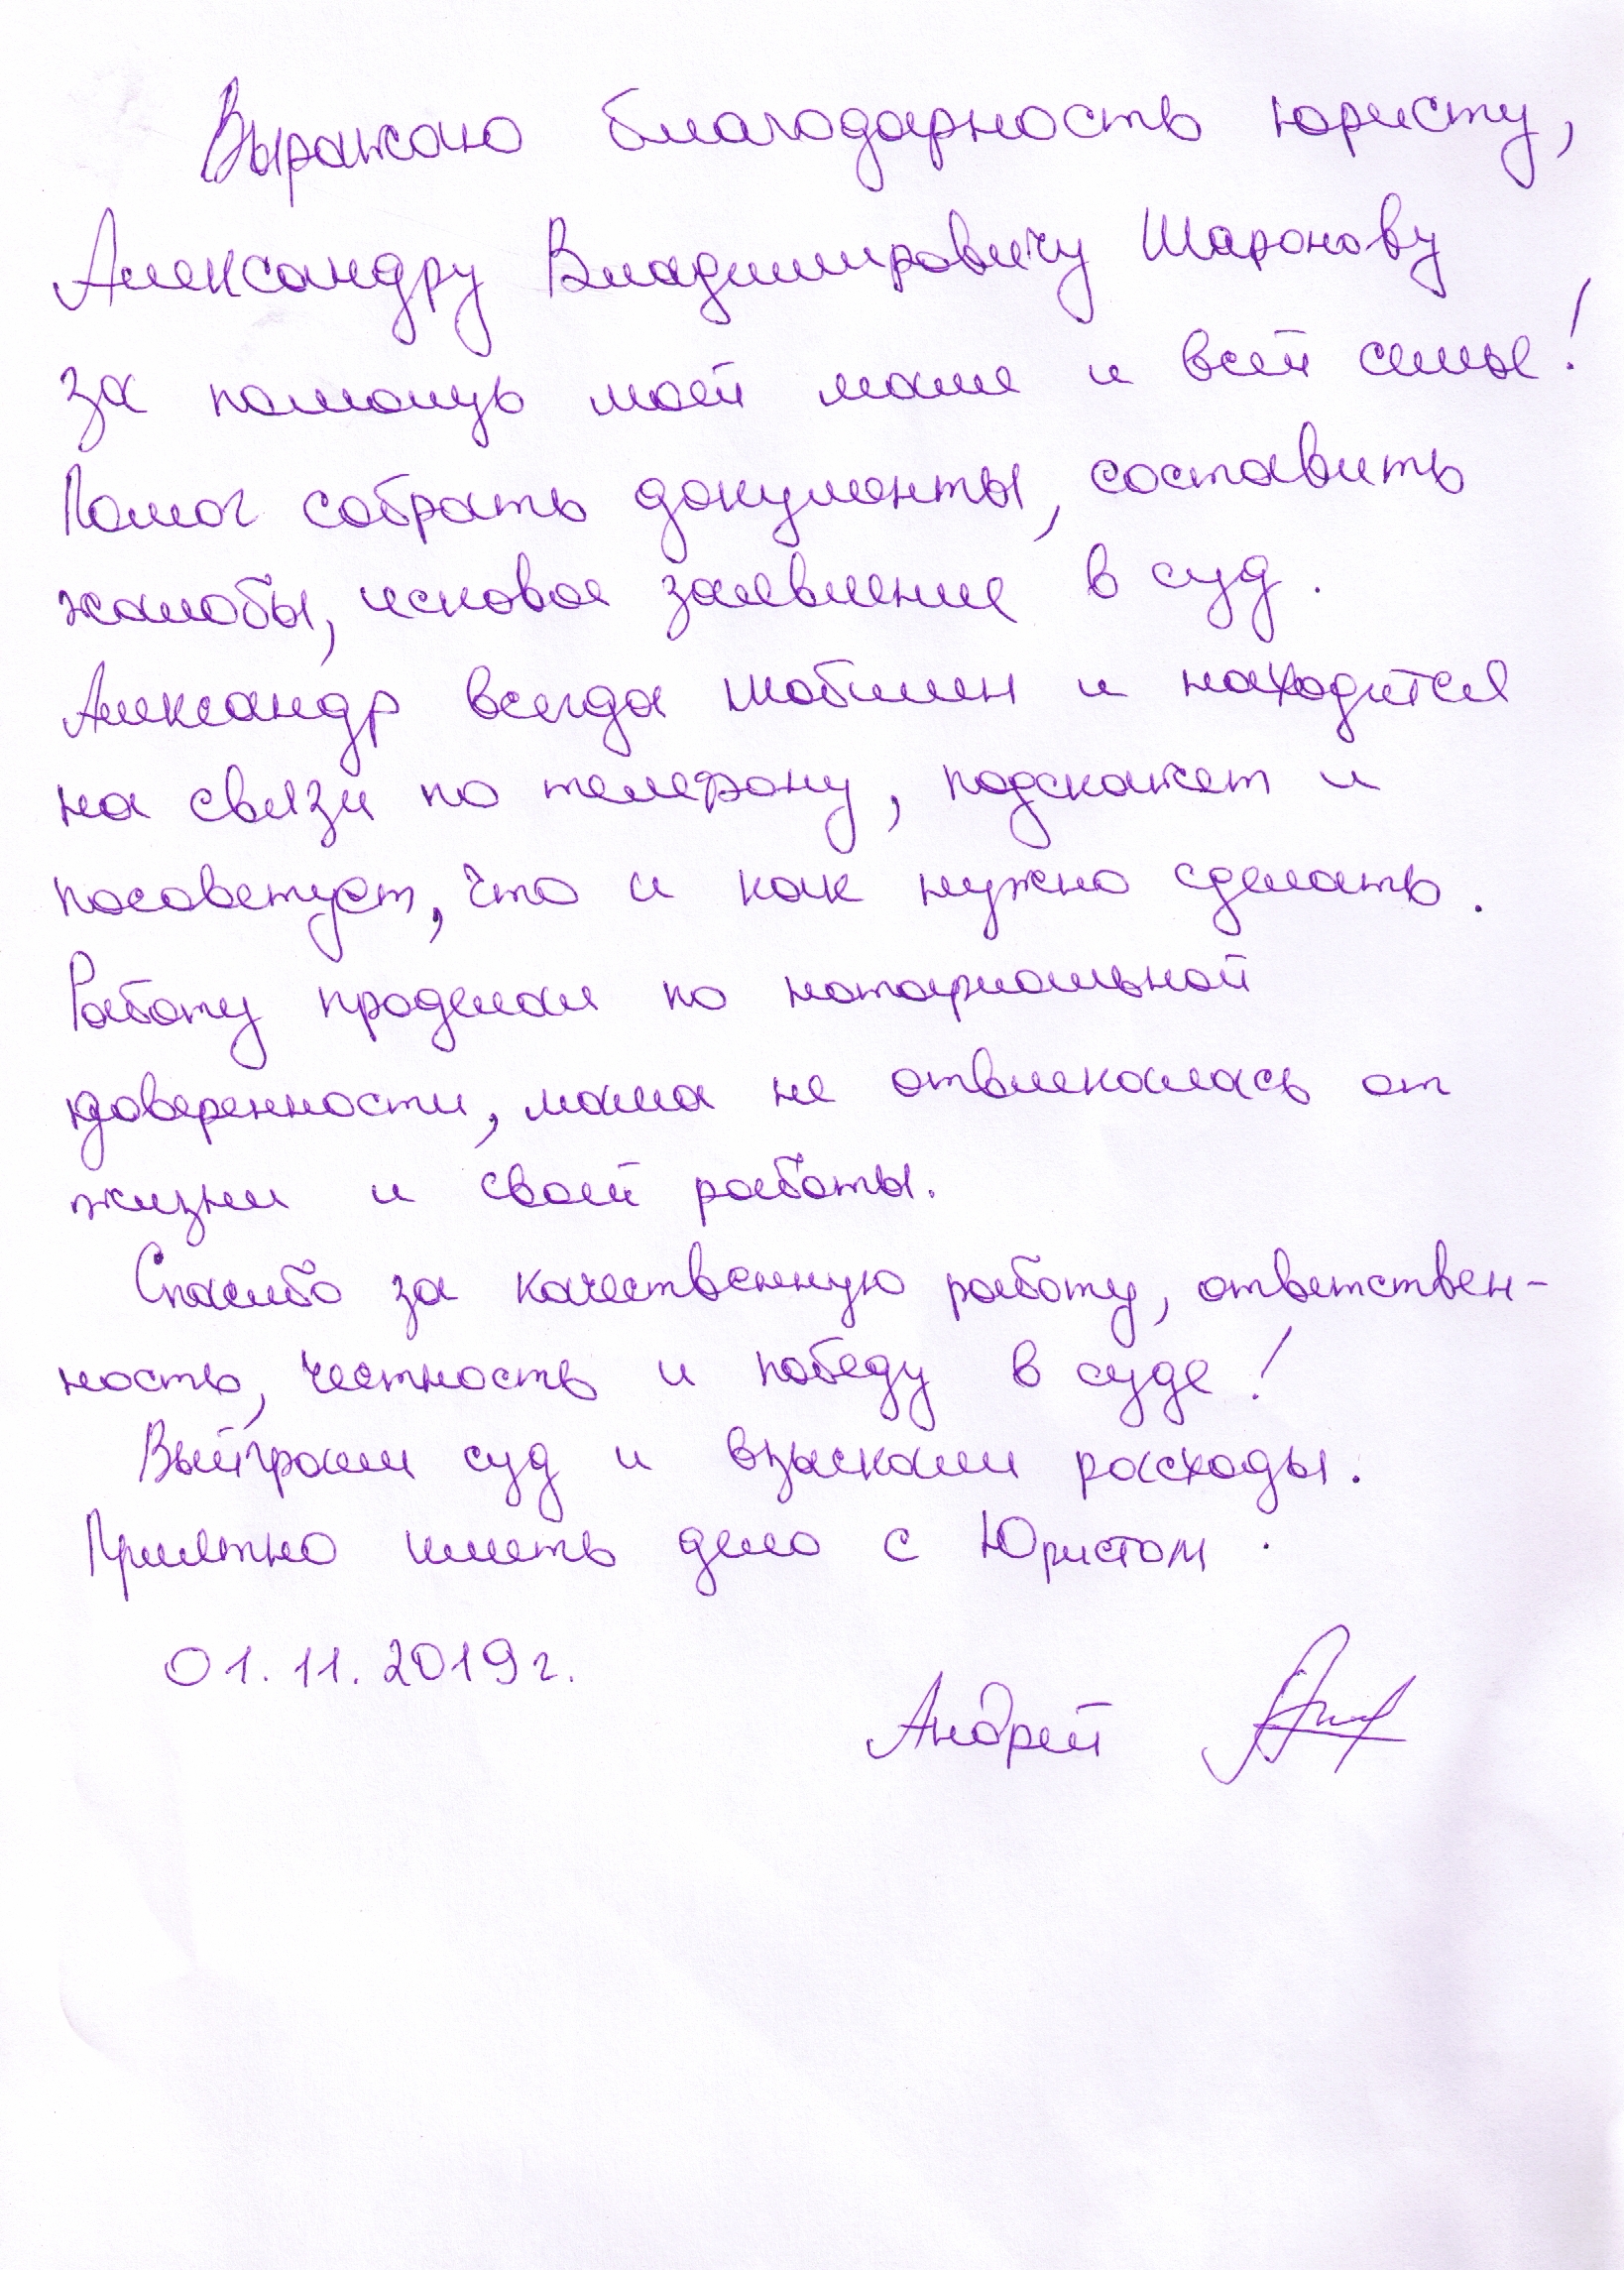 Выражаю благодарность юристу,
Александру Владимировичу Шаронову
за помощь моей маме и всей семье!
Помог собрать документы, составить
жалобы, исковое заявление в суд.
Александр всегда мобилен и находится
на связи по телефону, подскажет и
посоветует, что и как нужно сделать.
Работу проделал по нотариальной
доверенности, мама не отвлекалась от
жизни и своей работы.
Спасибо за качественную работу, ответствен-
ность, честность и победу в суде!
Выйграли суд и взыскали расходы.
Приятно иметь дело с Юристом.
01.11.2019г.
Андрей